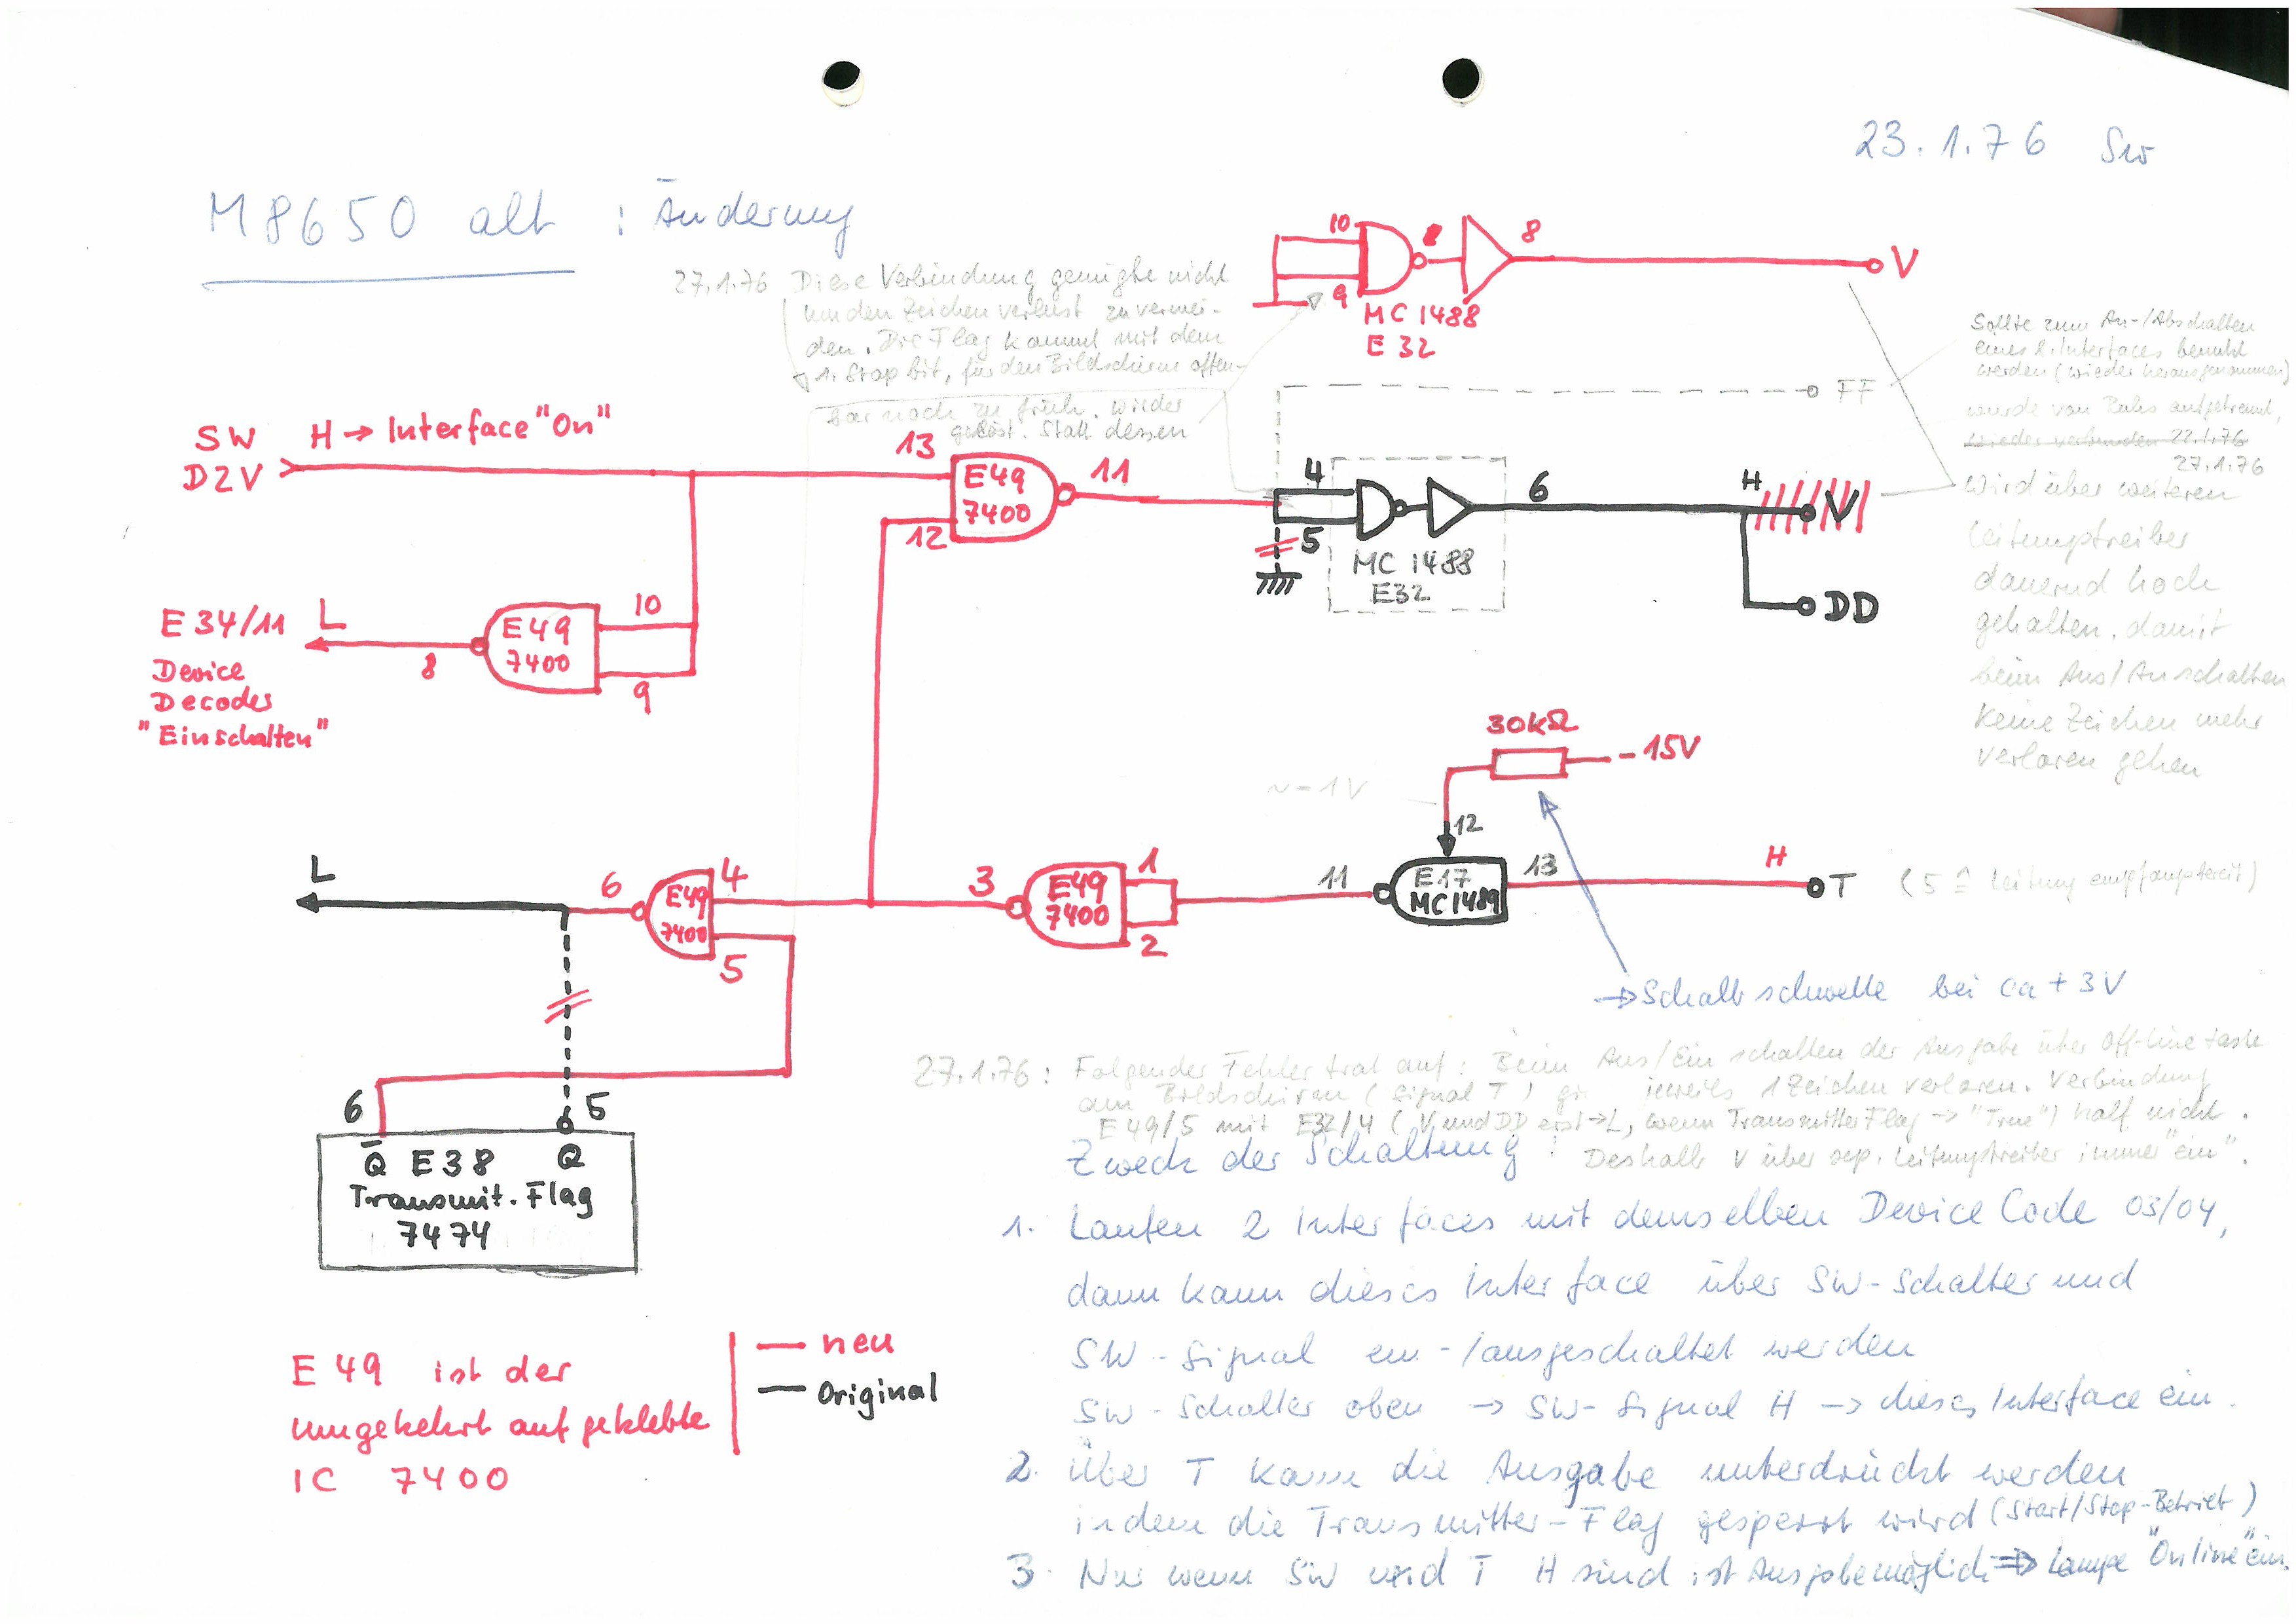 23.1.76 Sw
M8650 alt : Änderung
27.1.76 Diese Verbindung genügte nicht
um den Zeichenverlust zu vermei-
den. Die Flag kommt mit dem
1. Stop bit, für den Bildschirm offen-
bar noch zu früh. Wieder
gelöst. Statt dessen
10
9
8
8
V
MC 1488
E 32
Sollte zum An-/Abschalten
eines 2. Interfaces benutzt
werden (wieder herausgenommen)
FF
wurde von aufgetrennt,
wieder verbunden 22.1.76
27.1.76
Wird über weiteren
Leitungstreiber
dauernd hoch
gehalten, damit
beim Aus/Anschalten
keine Zeichen mehr
verloren gehen
SW H → Interface "On"
D2V
13
12
E49
7400
11
4
5
MC 1488
E32
6
H
V
DD
E 34/11
L
8
E49
7400
10
9
Device
Decoder
"Einschalten"
30kΩ
-15V
~ -1V
12
L
6
E49
7400
4
5
3
E49
7400
1
2
11
E17
MC1489
13
H
T
(5 ≙ Leitung empfangsbereit)
→ Schaltschwelle bei ca + 3V
27.1.76: Folgender Fehler trat auf: Beim Aus/Einschalten der Ausgabe über Off-line taste
am Bildschirm (Signal T) jeweils 1 Zeichen verloren. Verbindung
E49/5 mit E32/4 (V und DD erst → L, wenn Transmitter Flag → "True") half nicht.
Deshalb V über sep. Leitungstreiber immer "ein".
6
5
Q̅ E38 Q
Transmit. Flag
7474
Zweck der Schaltung:
1. Laufen 2 Interfaces mit demselben Device Code 03/04,
dann kann dieses Interface über SW-Schalter und
SW-Signal ein-/ausgeschaltet werden
SW-Schalter oben → SW-Signal H → dieses Interface ein.
2. Über T kann die Ausgabe unterdrückt werden
indem die Transmitter-Flag gesperrt wird (Start/Stop-Betrieb)
3. Nur wenn SW und T H sind ist Ausgabe möglich ⇒ Lampe "Online" ein.
E 49 ist der
umgekehrt aufgeklebte
IC 7400
neu
Original